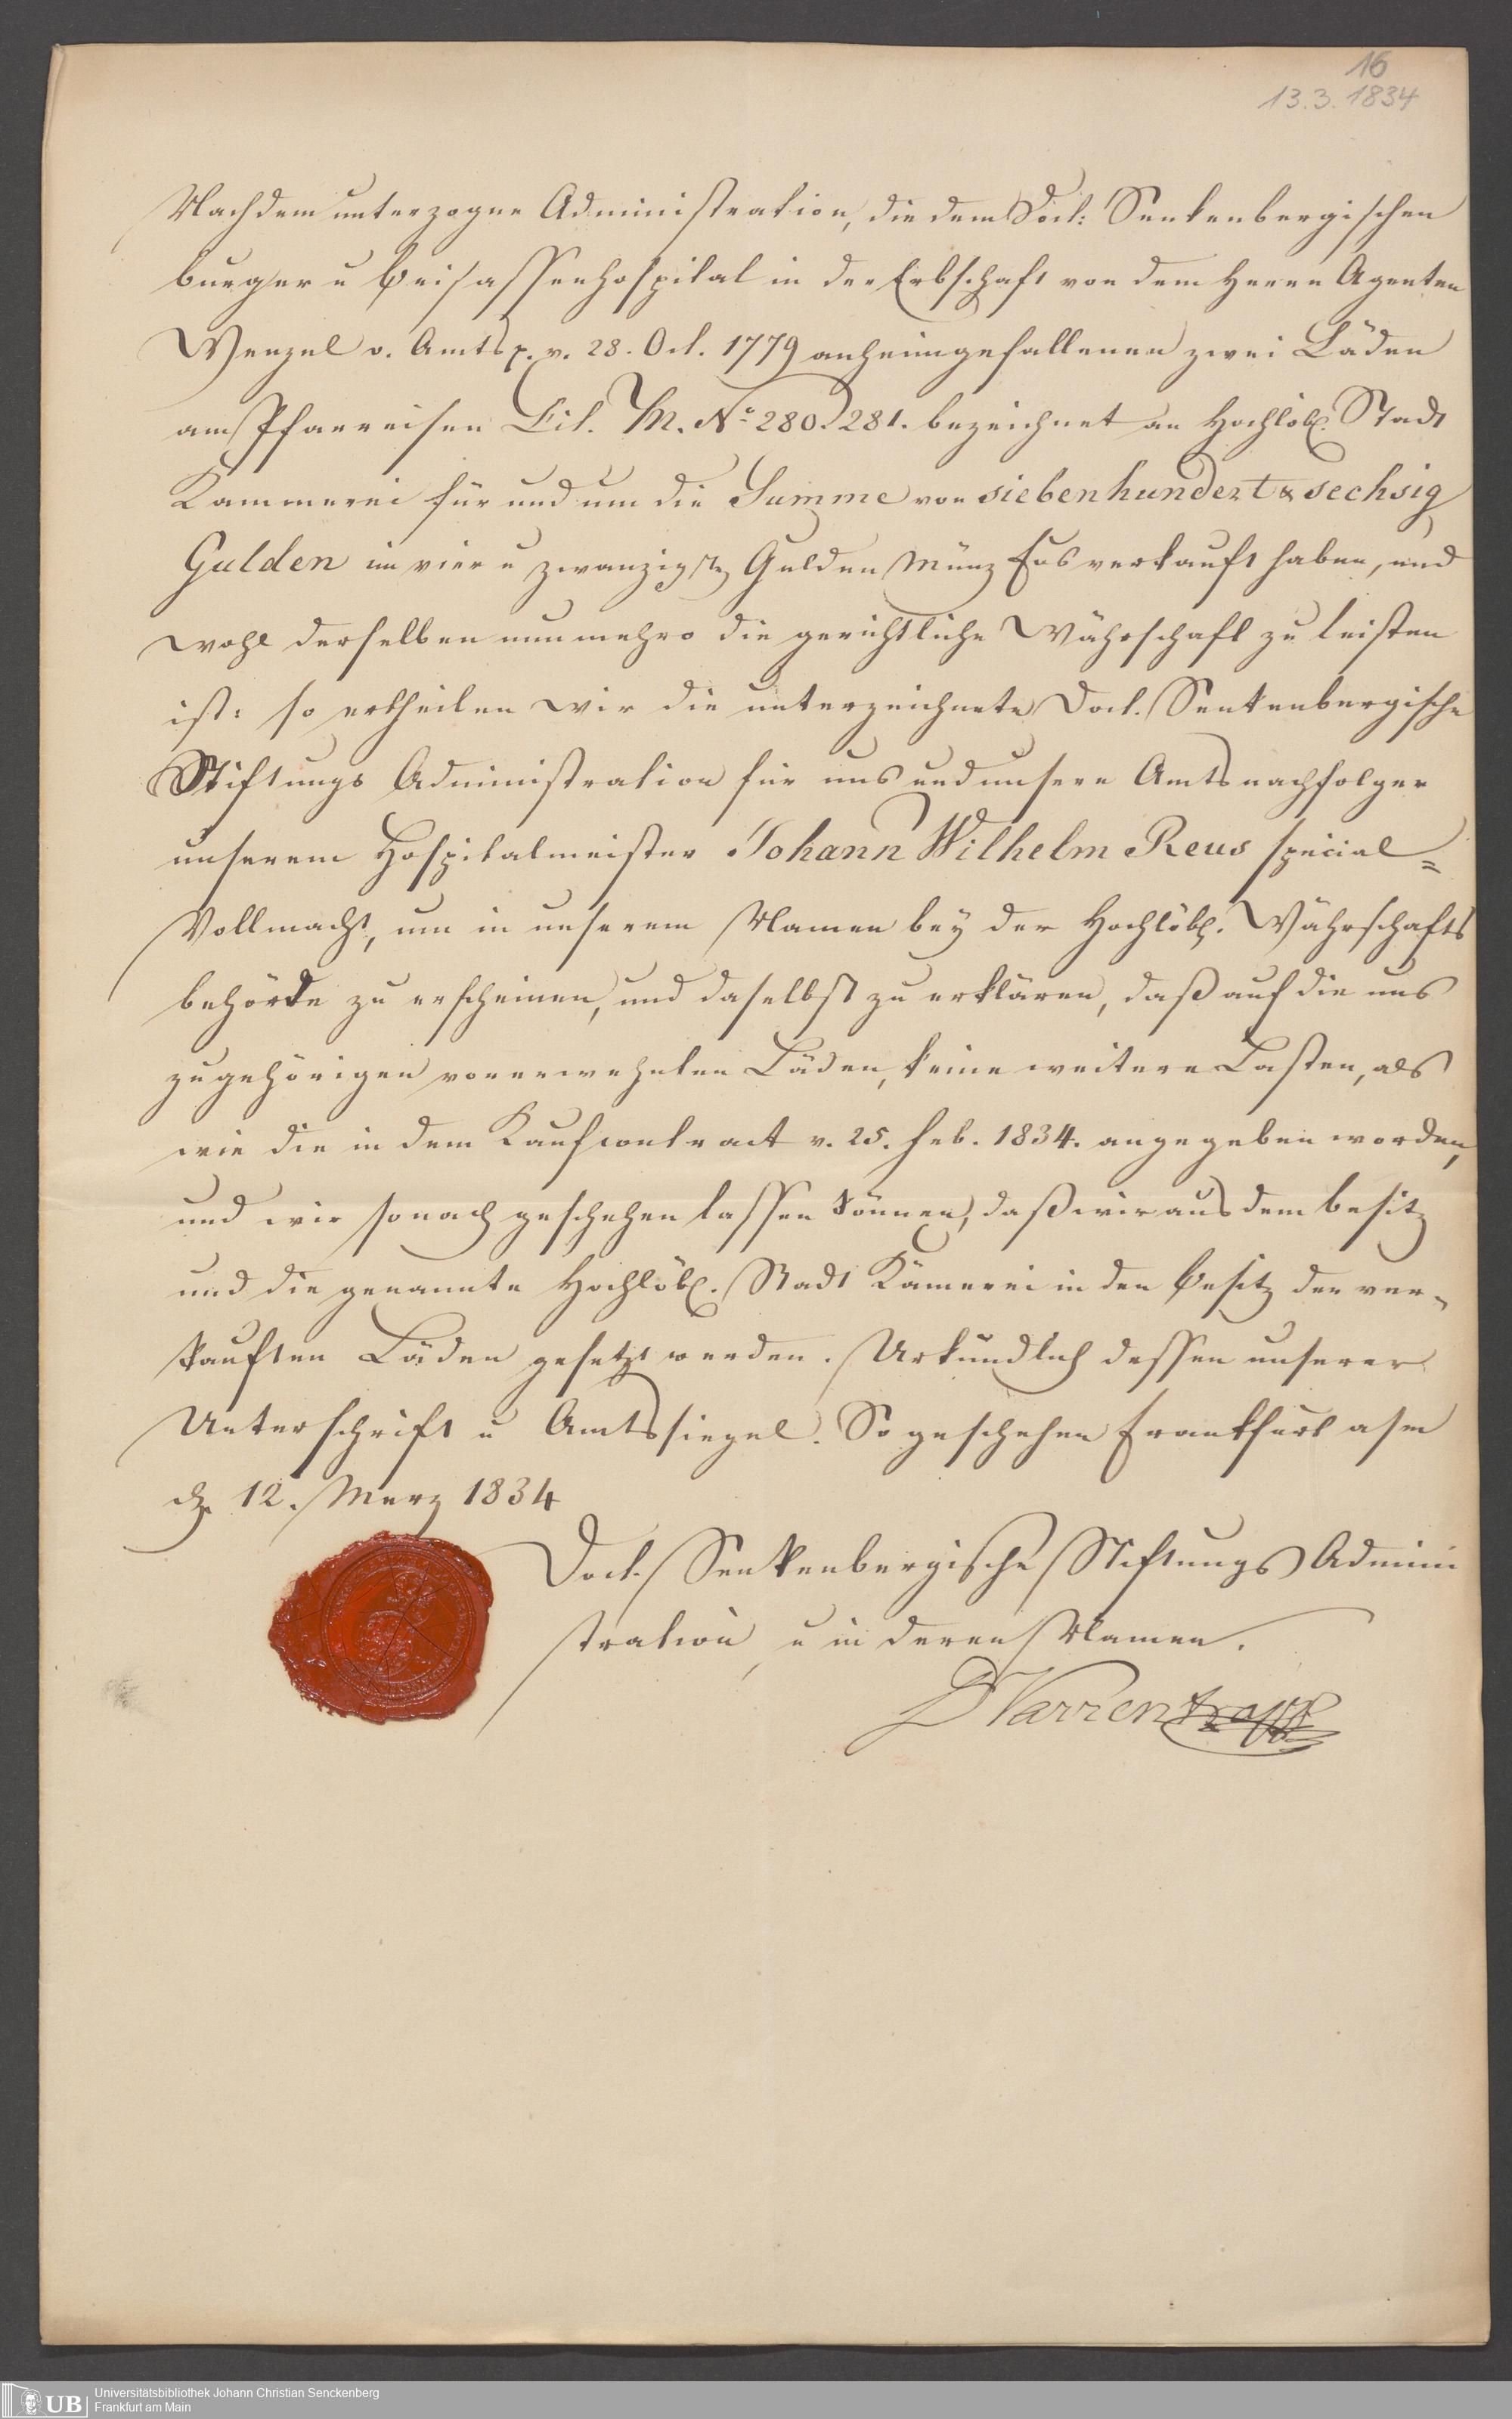 16
13.3.1834
Nachdem unterzogne Administration, die dem Doct: Senkenbergischen
burger u Beisassenhospital in der Erbschaft von dem Herrn Agenten
Wenzel v. Amts p. v. 28. Oct. 1779 anheimgefallenen zwei Läden
am Pfarreisen Lit. M. No 280. 281. bezeichnet an Hochlöbl. Stadt
Kammerei für und um die Summe von siebenhundert & sechsig
Gulden im vier u zwanzigste Gulden Münz Fus verkauft haben, und
wohl derselben nunmehro die gerichtliche Währschaft zu leisten
ist: so ertheilen wir die unterzeichnete Doct. Senkenbergische
Stiftungs Administration für uns und unsere Amtsnachfolger
unserem Hospitalmeister Johann Wilhelm Reus special=
Vollmacht, um in unserem Namen bey der Hochlöbl. Währschafts
behörde zu erscheinen, und daselbst zu erklären, daß auf die uns
zugehörigen vorerwehnten Läden, keine weitere Lasten, als
wie die in dem Kaufcontract v. 25. Feb. 1834. angegeben worden,
und wir sonach geschehen lassen können, daß wir aus dem besitz
und die genannte Hochlöbl. Stadt Kämerei in den Besitz der ver-
kauften Läden gesetzt werden. Urkundlich dessen unserer
Unterschrift u Amtssiegel. So geschehen Frankfurt a/m
d. 12. Merz 1834
Doct. Senkenbergische Stiftungs Admini
stration, u in deren Namen.
D Varrentrapp
UB
Universitätsbibliothek Johann Christian Senckenberg
Frankfurt am Main